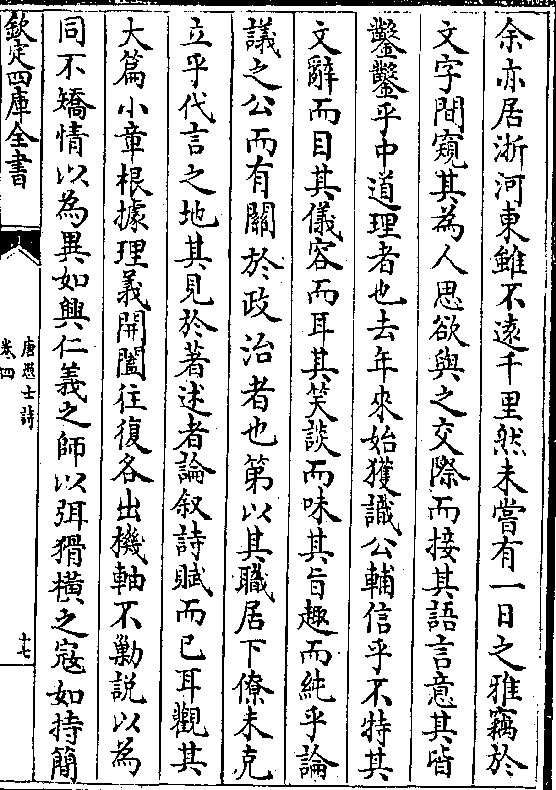 余亦居浙河東雖不遠千里然未嘗有一日之雅竊於
文字間窺其為人思欲與之交際而接其語言意其皆
鑿鑿乎中道理者也去年來始獲識公輔信乎不特其
文辭而目其儀容而耳其笑談而味其旨趣而純乎論
議之公而有關於政治者也第以其職居下僚未克
立乎代言之地其見於著述者論叙詩賦而已耳觀其
大篇小章根據理義開闔往復各出機軸不勦説以為
同不矯情以為異如興仁義之師以弭猾橫之寇如持簡
欽定四庫全書
唐愚士詩
卷四
十七